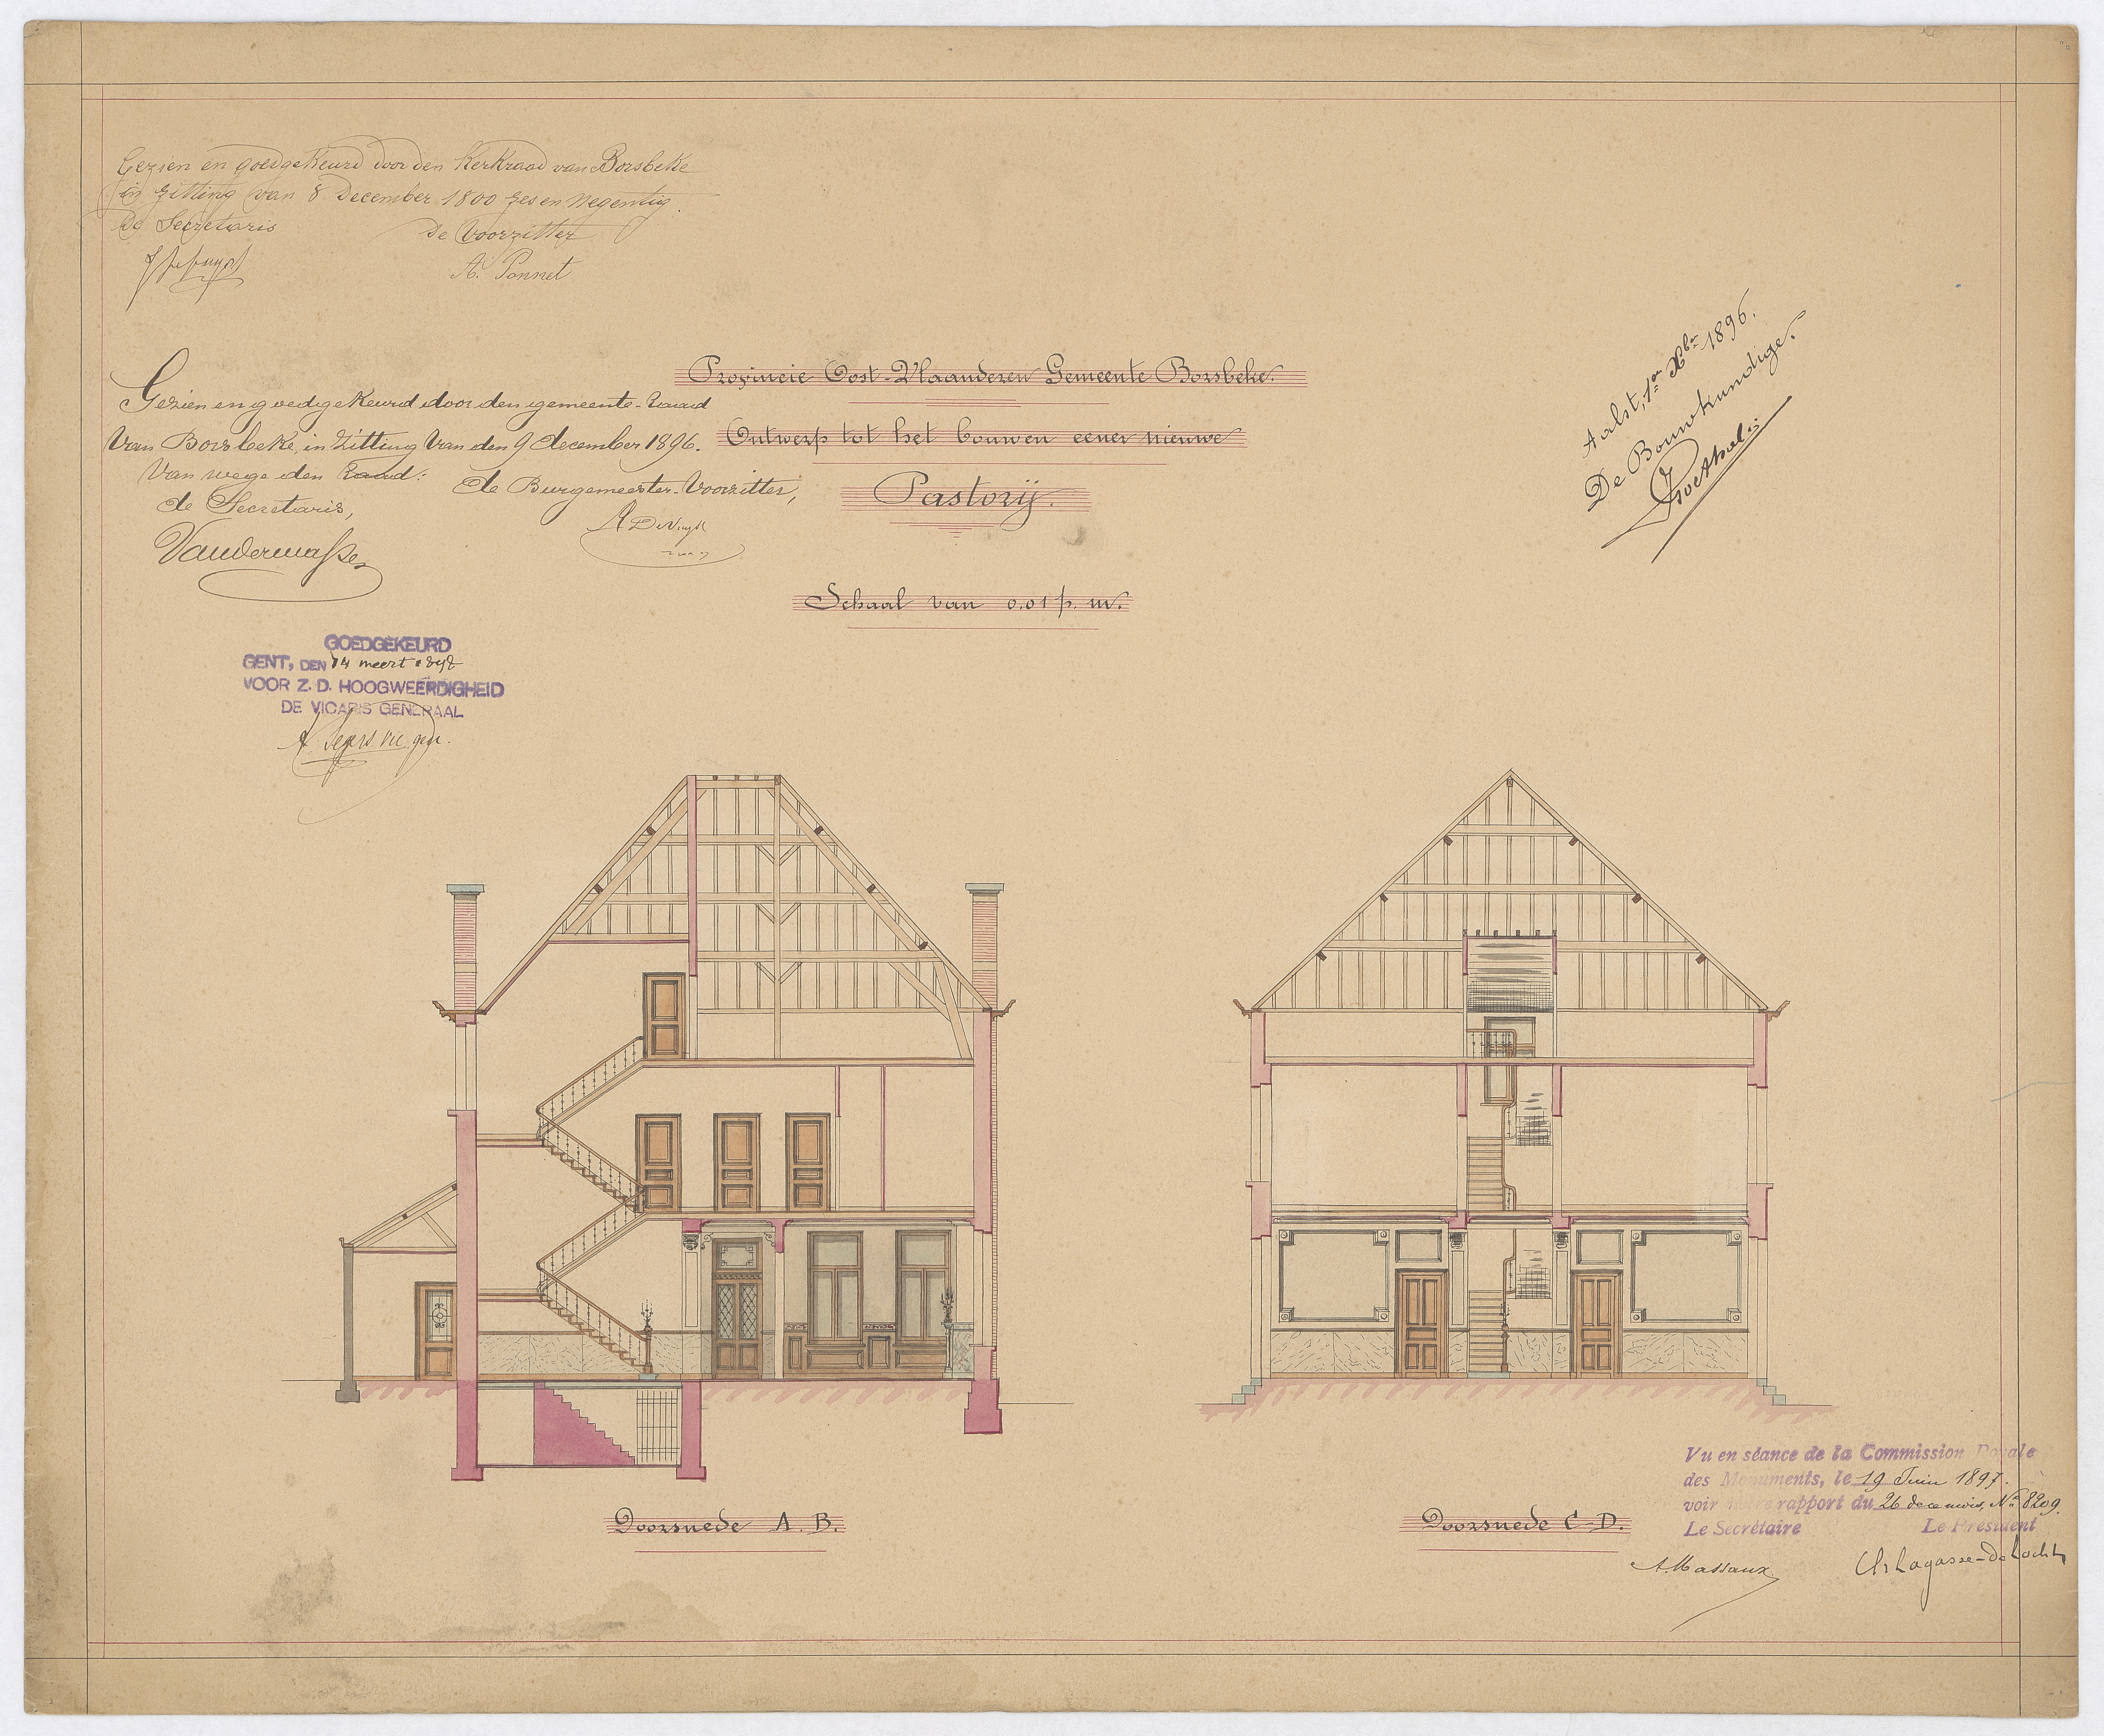 Gezien en goedgekeurd door den Kerkraad van Borsbeke
in zitting van 8 December 1800 zes en negentig.
De Secretaris De Voorzitter
A. Ponnet
Provincie Oost-Vlaanderen Gemeente Borsbeke.
Gezien en goedgekeurd door den gemeente-raad
van Borsbeke, in zitting van den 9 december 1896.
Ontwerp tot het bouwen eener nieuwe
Pastorij.
Van wege den Raad:
de Secretaris, de Burgemeester-Voorzitter,
Schaal van 0.01 p. m.
Aalst, 1en Xber 1896.
De Bouwkundige.
GOEDGEKEURD
GENT, DEN 14 meert 1897
VOOR Z. D. HOOGWEERDIGHEID
DE VICARIS GENERAAL
Doorsnede A. B.
Doorsnede C-D.
Vu en séance de la Commission Royale
des Monuments, le 19 Juin 1897.
voir notre rapport du 26 de ce mois, No 8209.
Le Secrétaire Le Président
A. Massaux Ch Lagasse-de Locht